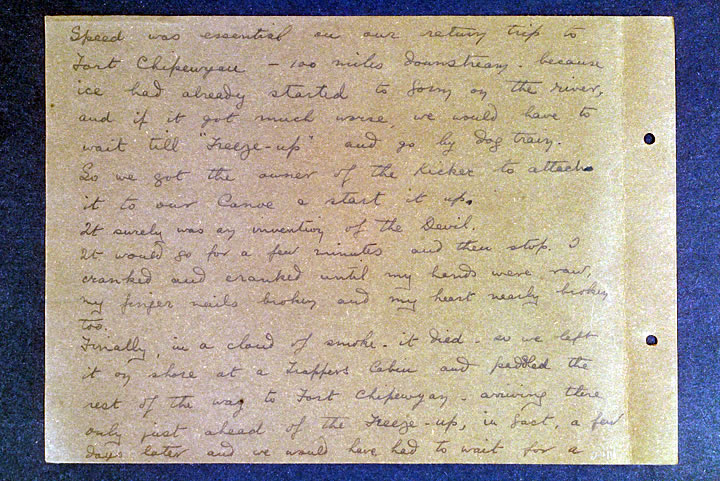 Speed was essential on our return trip to
Fort Chipewyan - 100 miles downstream - because
ice had already started to form on the river,
and if it got much worse, we would have to
wait till "Freeze-up" and go by dog train.
So we got the owner of the Kicker to attach
it to our Canoe & start it up.
It surely was an invention of the Devil.
It would go for a few minutes and then stop. I
cranked and cranked until my hands were raw,
my finger nails broken and my heart nearly broken
too.
Finally, in a cloud of smoke - it died - so we left
it on shore at a Trappers Cabin and peddled the
rest of the way to Fort Chipewyan - arriving there
only just ahead of the Freeze-up, in fact, a few
days later and we would have had to wait for a